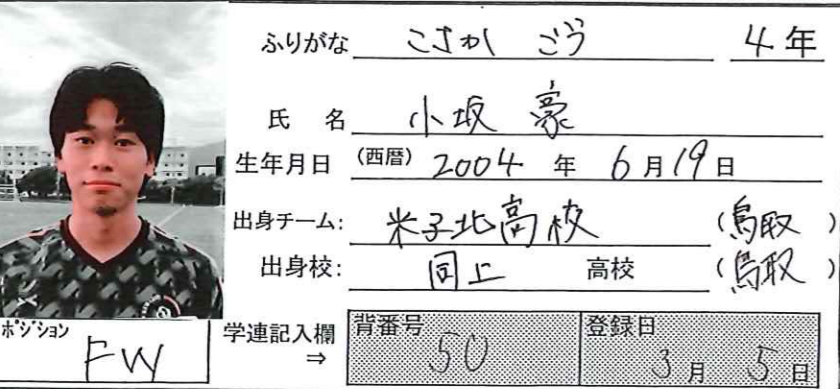 ふりがな こさか ごう 4年
氏 名 小坂 豪
生年月日 (西暦) 2004 年 6月19日
出身チーム: 米子北高校 (鳥取)
出身校: 同上 高校 (鳥取)
ポジション FW
学連記入欄 ⇒ 背番号 50 登録日 3月 5日